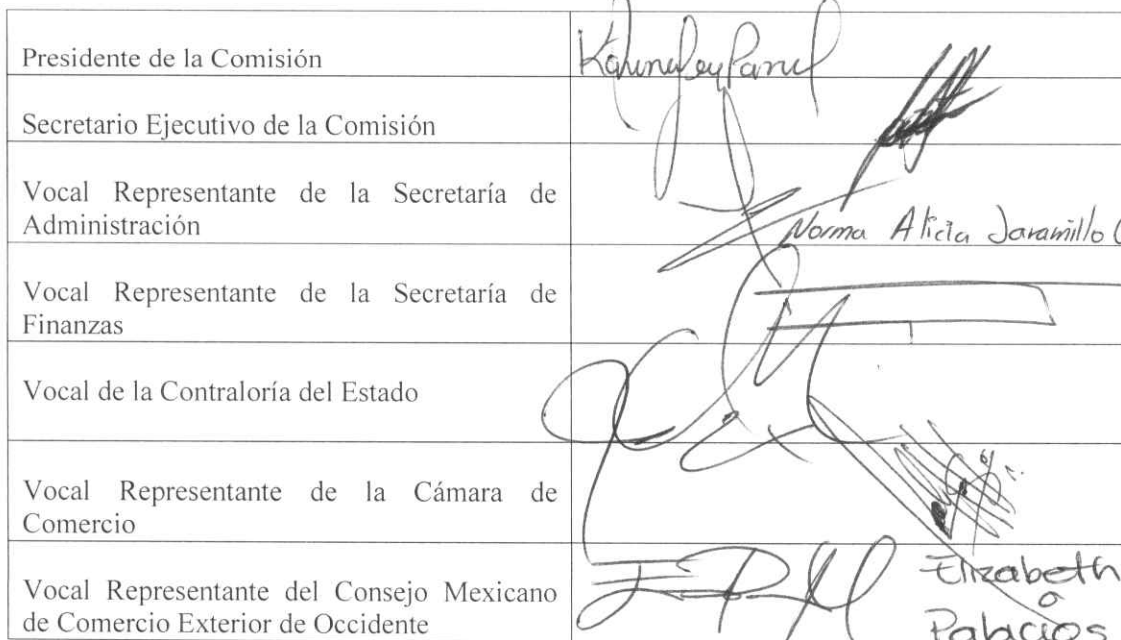 Presidente de la Comisión
Secretario Ejecutivo de la Comisión
Vocal Representante de la Secretaría de
Administración
Norma Alicia Jaramillo
Vocal Representante de la Secretaría de
Finanzas
Vocal de la Contraloría del Estado
Vocal Representante de la Cámara de
Comercio
Vocal Representante del Consejo Mexicano
de Comercio Exterior de Occidente
Elizabeth
Palacios